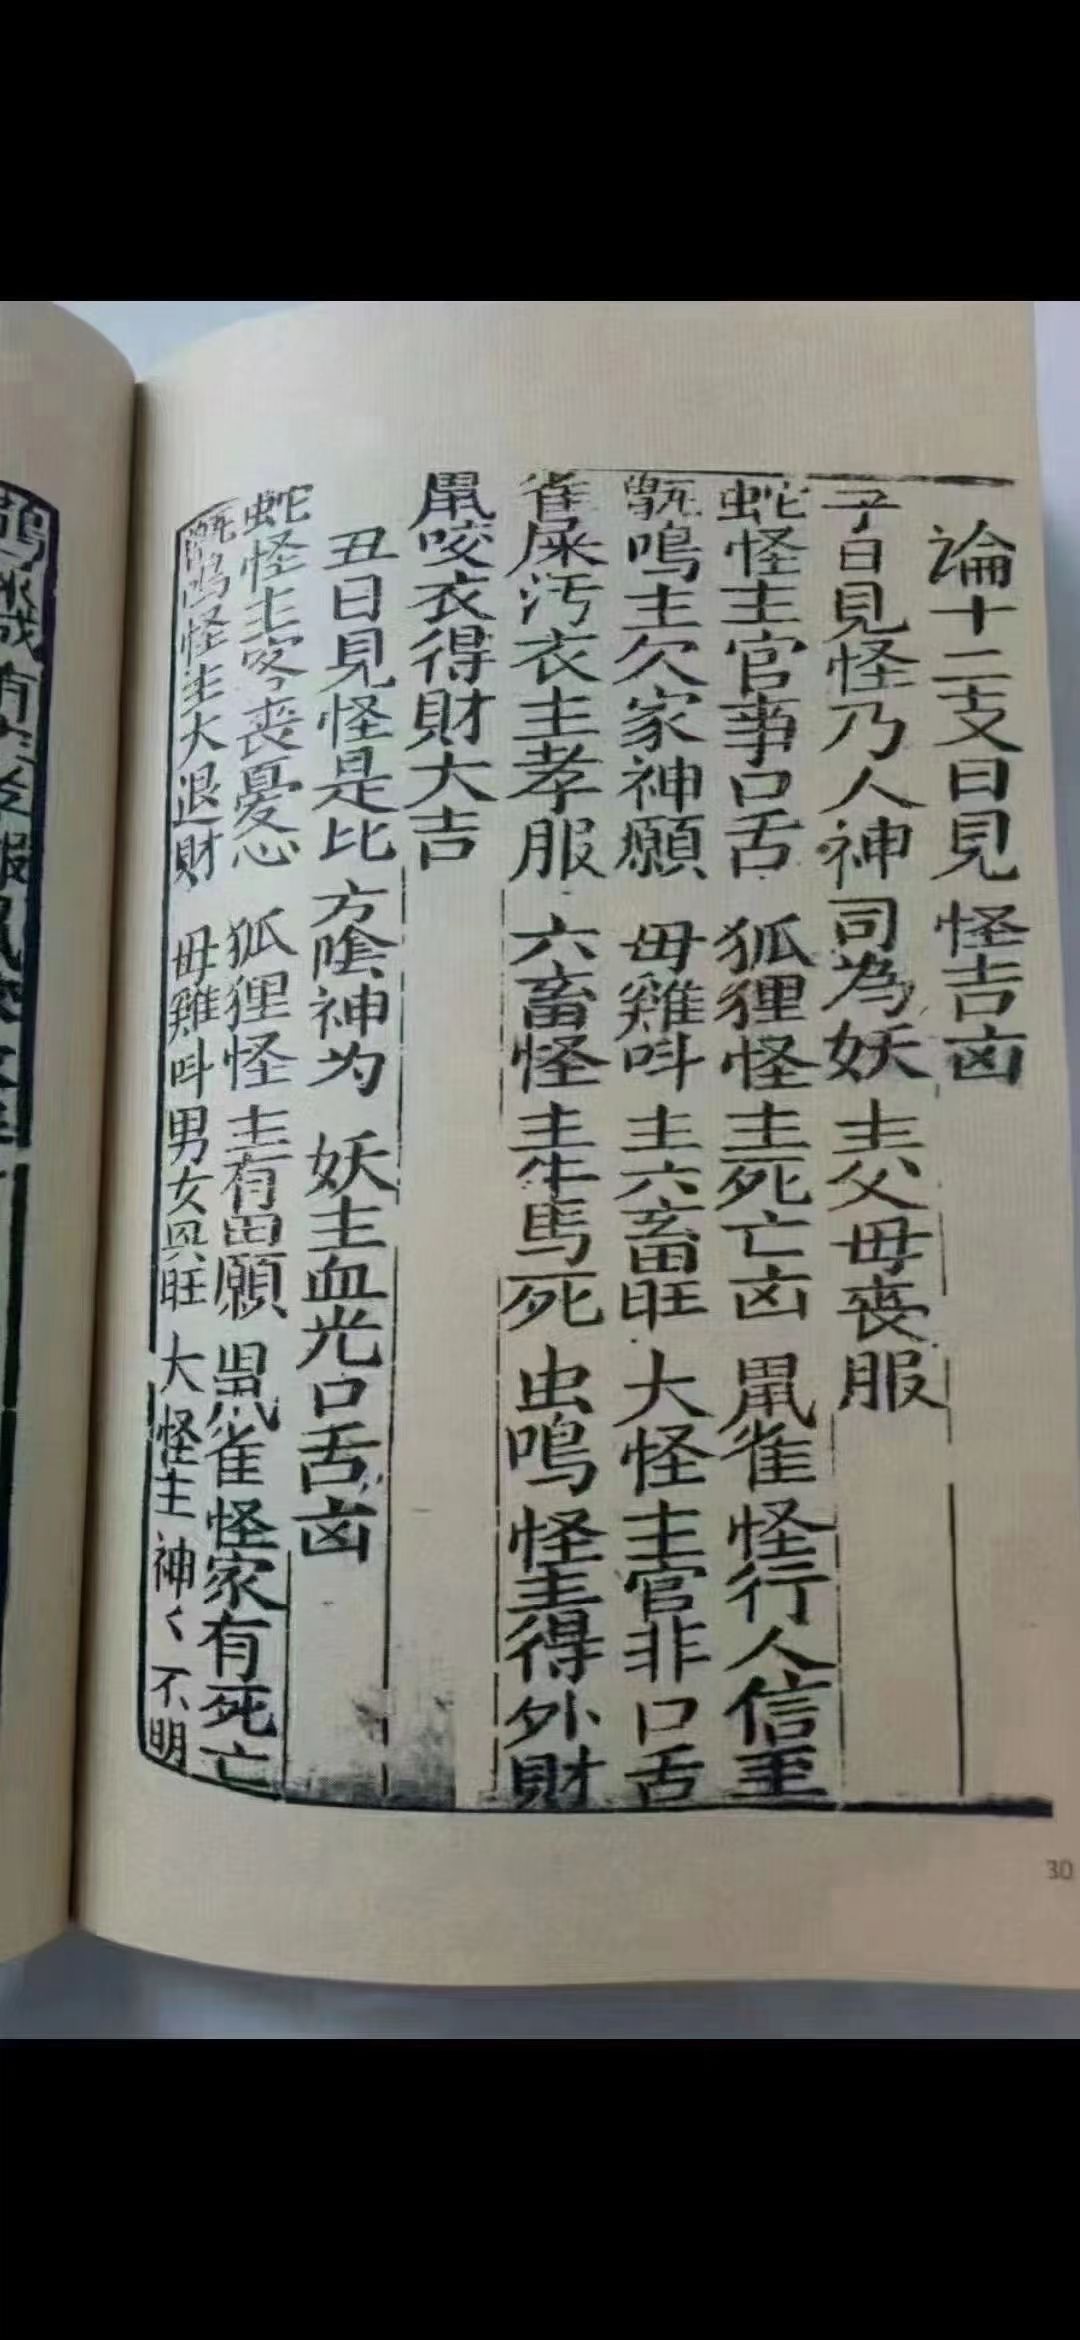 論十二支日見怪吉凶
子日見怪乃人神司為妖主父母喪服
蛇怪主官事口舌 狐狸怪主死亡凶 鼠雀怪行人信至
甑鳴主欠家神願 母雞叫主六畜旺 大怪主官非口舌
雀屎汚衣主孝服 六畜怪主牛馬死 虫鳴怪主得外財
鼠咬衣得財大吉
丑日見怪是比方陰神为妖主血光口舌凶
蛇怪主客喪憂心 狐狸怪主有田願 鼠雀怪家有死亡
甑鸣怪主大退財 母雞叫男女興旺 大怪主神〻不明
30